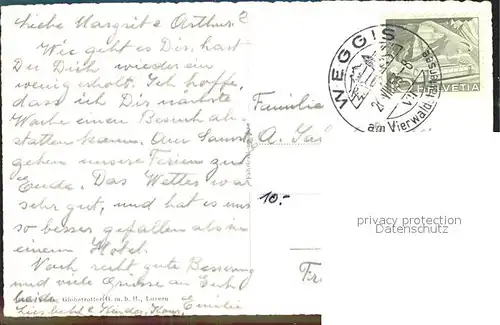 Liebe Margrit & Arthur?
Wie geht es Dir, hast
Du Dich wieder ein
wenig erholt. Ich hoffe,
dass ich Dir nächste
Woche einen Besuch ab-
statten kann. Am Samst
gehen unsere Ferien zu
Ende. Das Wetter war
sehr gut, und hat es uns
so besser gefallen als in
einem Hotel.
Noch recht gute Besserung
und viele Grüsse an Euch
beide
Globetrotter G. m. b. H., Luzern
Emilie
Familie
A.
10.-
WEGGIS
am Vierwald
HELVETIA
privacy protection
Datenschutz